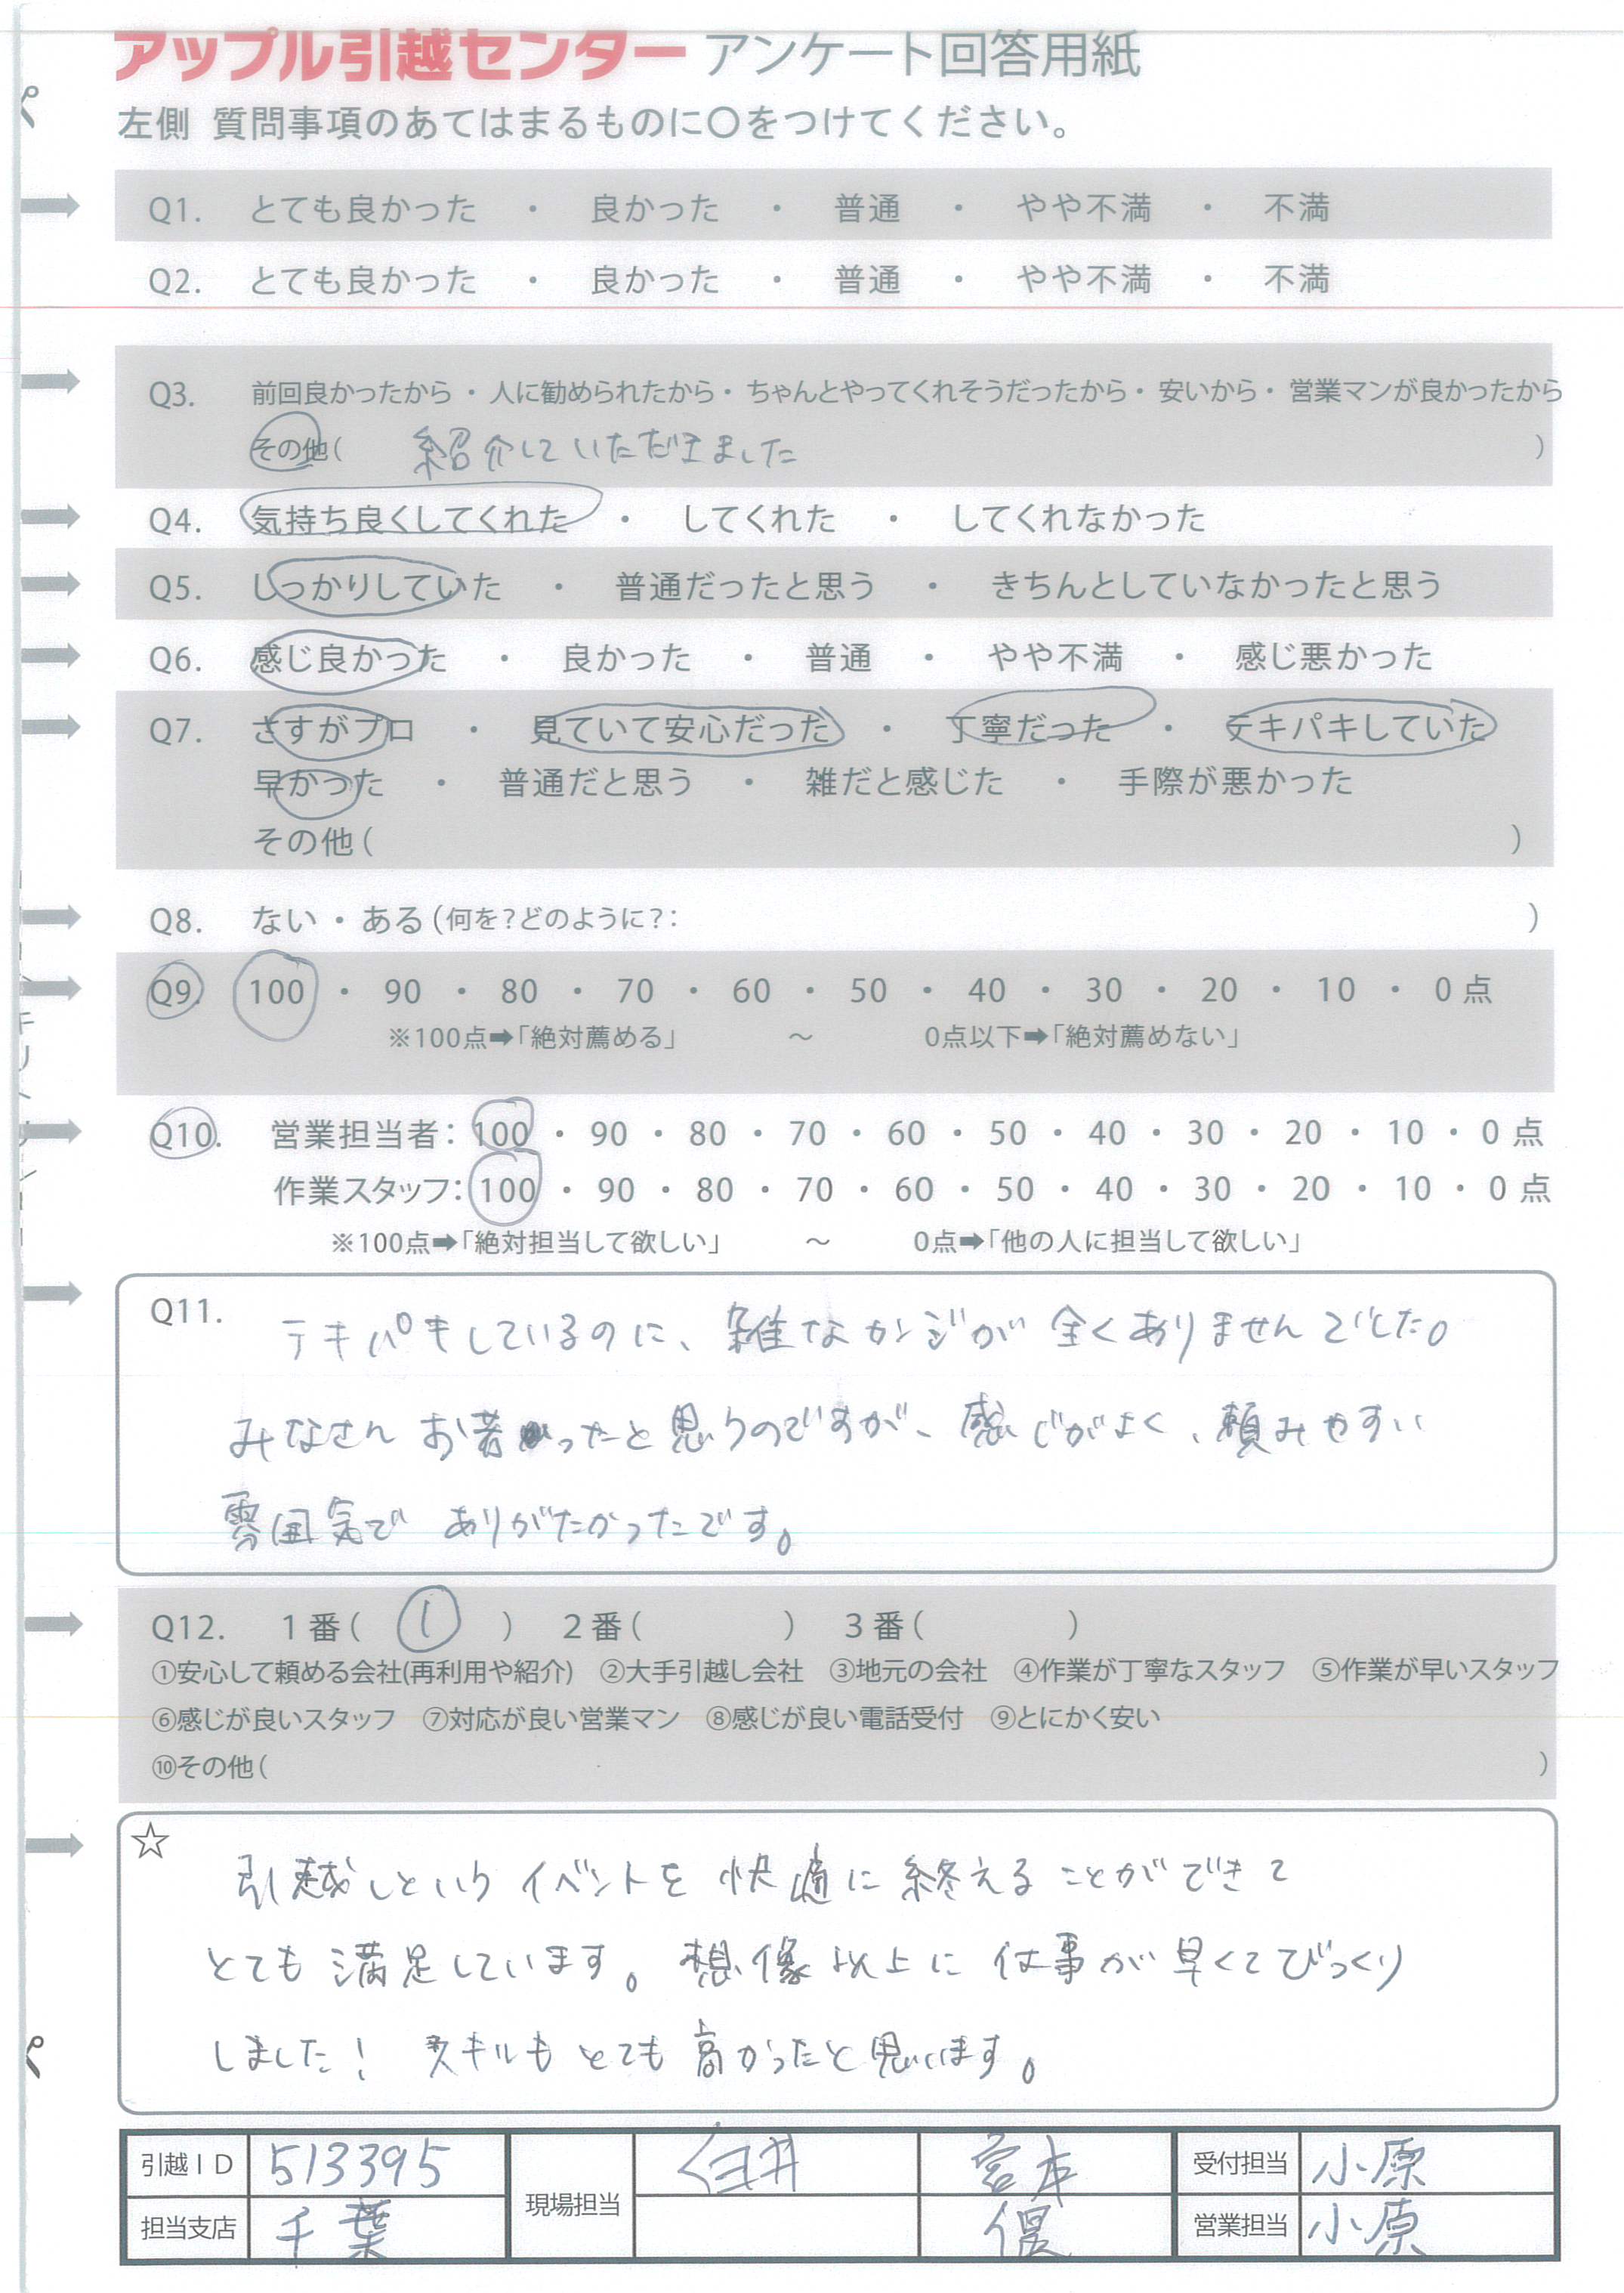 アップル引越センター アンケート回答用紙
左側 質問事項のあてはまるものに〇をつけてください。
Q1. とても良かった ・ 良かった ・ 普通 ・ やや不満 ・ 不満
Q2. とても良かった ・ 良かった ・ 普通 ・ やや不満 ・ 不満
Q3. 前回良かったから・人に勧められたから・ちゃんとやってくれそうだったから・安いから・営業マンが良かったから
その他( 紹介していただきました )
Q4. 気持ち良くしてくれた ・ してくれた ・ してくれなかった
Q5. しっかりしていた ・ 普通だったと思う ・ きちんとしていなかったと思う
Q6. 感じ良かった ・ 良かった ・ 普通 ・ やや不満 ・ 感じ悪かった
Q7. さすがプロ ・ 見ていて安心だった ・ 丁寧だった ・ テキパキしていた
早かった ・ 普通だと思う ・ 雑だと感じた ・ 手際が悪かった
その他( )
Q8. ない・ある(何を?どのように?: )
Q9. 100 ・ 90 ・ 80 ・ 70 ・ 60 ・ 50 ・ 40 ・ 30 ・ 20 ・ 10 ・ 0点
※100点➡「絶対薦める」 〜 0点以下➡「絶対薦めない」
Q10. 営業担当者: 100 ・ 90 ・ 80 ・ 70 ・ 60 ・ 50 ・ 40 ・ 30 ・ 20 ・ 10 ・ 0点
作業スタッフ: 100 ・ 90 ・ 80 ・ 70 ・ 60 ・ 50 ・ 40 ・ 30 ・ 20 ・ 10 ・ 0点
※100点➡「絶対担当して欲しい」 〜 0点➡「他の人に担当して欲しい」
Q11. テキパキしているのに、雑なカンジが全くありませんでした。
みなさんお若かったと思うのですが、感じがよく、頼みやすい
雰囲気で ありがたかったです。
Q12. 1番( ① ) 2番( ) 3番( )
①安心して頼める会社(再利用や紹介) ②大手引越し会社 ③地元の会社 ④作業が丁寧なスタッフ ⑤作業が早いスタッフ
⑥感じが良いスタッフ ⑦対応が良い営業マン ⑧感じが良い電話受付 ⑨とにかく安い
⑩その他( )
☆ 引越しというイベントを快適に終えることができて
とても満足しています。想像以上に仕事が早くてびっくり
しました! スキルもとても高かったと思います。
引越ID 513395 現場担当 臼井 宮本 受付担当 小原
担当支店 千葉 偎 営業担当 小原